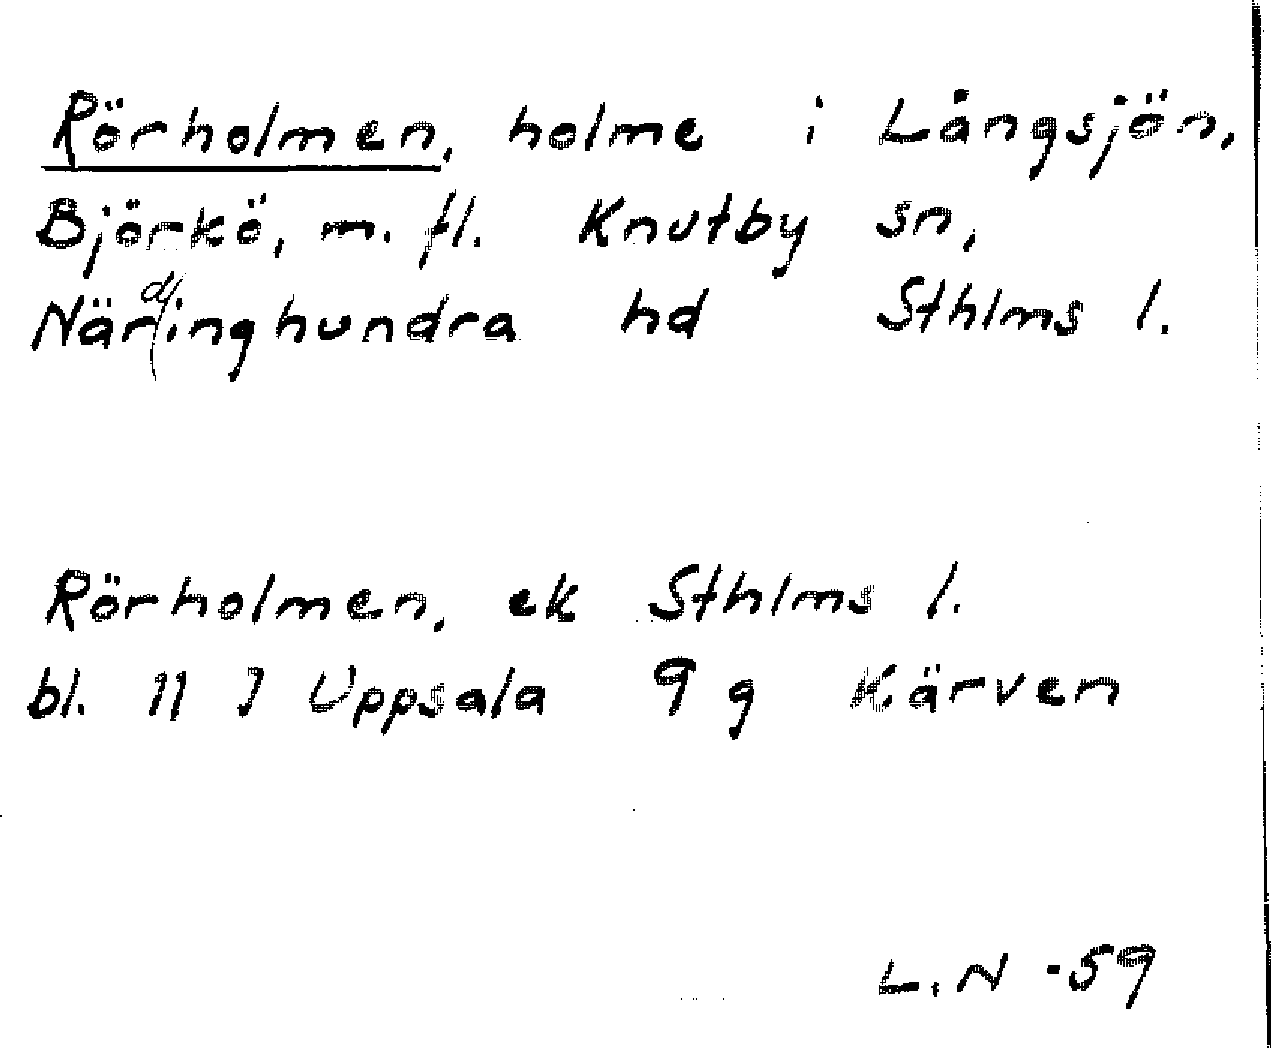 Rörholmen, holme i Långsjön,
Björkö, m. fl. Knutby sn,
Närdinghundra hd Sthlms l.
Rörholmen, ek Sthlms l.
bl. 11 J Uppsala 9 g Kärven
L. N -59